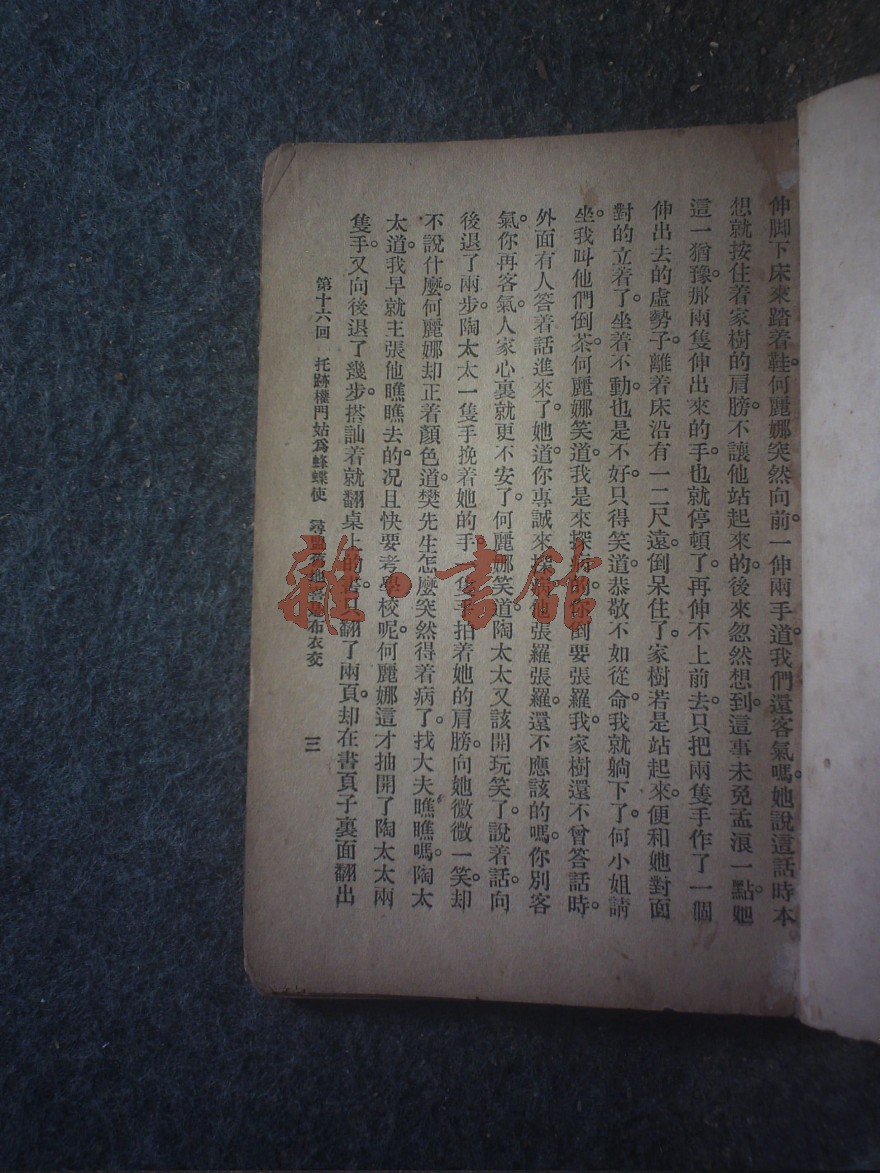 伸脚下床來踏着鞋何麗娜突然向前一伸兩手道。我們還客氣嗎。她說這話時本
想就按住着家樹的肩膀。不讓他站起來的。後來忽然想到。這事未免孟浪一點。她
這一猶豫。那兩隻伸出來的手。也就停頓了。再伸不上前去。只把兩隻手作了一個
伸出去的虛勢子。離着床沿有一二尺遠。倒呆住了。家樹若是站起來。便和她對面
對的立着了。坐着不動。也是不好。只得笑道。恭敬不如從命。我就躺下了。何小姐請
坐。我叫他們倒茶。何麗娜笑道。我是來探病的。你倒要張羅我。家樹還不曾答話時。
外面有人答着話進來了。她道。你專誠來探病。他張羅張羅。還不應該的嗎。你別客
氣。你再客氣。人家心裏就更不安了。何麗娜笑道。陶太太又該開玩笑了。說着話向
後退了兩步。陶太太一隻手挽着她的手。一隻手拍着她的肩膀。向她微微一笑。却
不說什麼。何麗娜却正着顏色道。樊先生怎麼突然得着病了。找大夫瞧瞧嗎。陶太
太道。我早就主張他瞧瞧去的。况且快要考學校呢。何麗娜這才抽開了陶太太兩
隻手。又向後退了幾步。搭訕着就翻桌上的書。只翻了兩頁。却在書頁子裏面翻出
第十六回 托跡權門姑爲蜂蝶使 尋 舊地 是布衣交 三
雜·書館